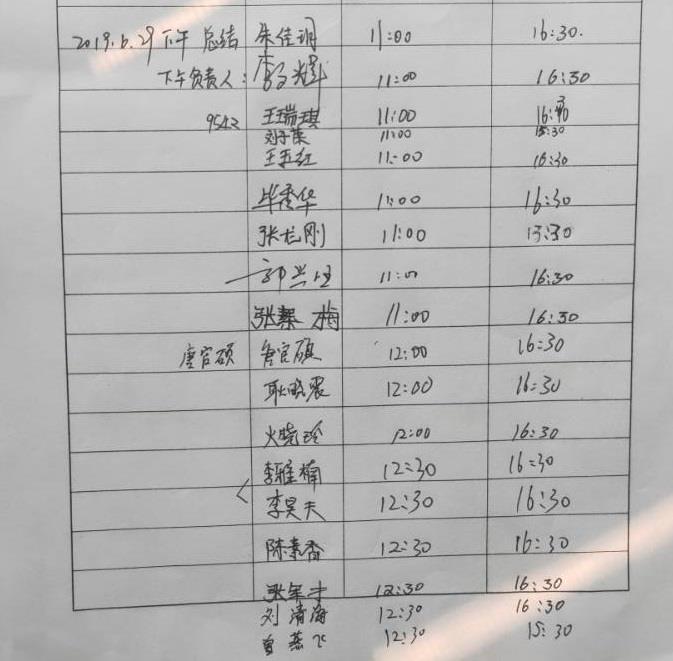 2019.6.29 下午 总结 朱佳玥 11:00 16:30.
下午负责人: 11:00 16:30
9542 王瑞琪 11:00
刘子荣 11:00 15:30
王玉红 11:00 16:30
毕秀华 11:00 16:30
张龙刚 11:00 13:30
郭兴旺 11:00 16:30
张絮梅 11:00 16:30
唐官硕 唐官硕 12:00 16:30
耿晓震 12:00 16:30
火晓玲 12:00 16:30
李雅楠 12:30 16:30
李昊天 12:30 16:30
陈素香 12:30 16:30
张军才 12:30 16:30
刘清海 12:30 16:30
曾燕飞 12:30 15:30